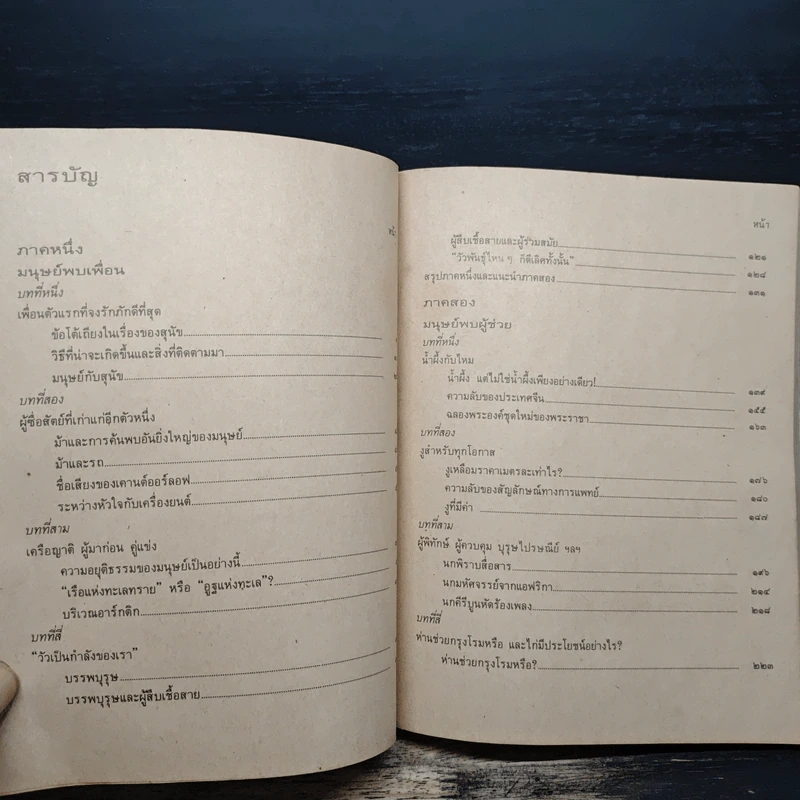 สารบัญ
ภาคหนึ่ง
มนุษย์พบเพื่อน
บทที่หนึ่ง
เพื่อนตัวแรกที่จงรักภักดีที่สุด
ข้อโต้เถียงในเรื่องของสุนัข
วิธีที่น่าจะเกิดขึ้นและสิ่งที่ติดตามมา
มนุษย์กับสุนัข
บทที่สอง
ผู้ซื่อสัตย์ที่เก่าแก่อีกตัวหนึ่ง
ม้าและการค้นพบอันยิ่งใหญ่ของมนุษย์
ม้าและรถ
ชื่อเสียงของเคานต์ออร์ลอฟ
ระหว่างหัวใจกับเครื่องยนต์
บทที่สาม
เครือญาติ ผู้มาก่อน คู่แข่ง
ความอยุติธรรมของมนุษย์เป็นอย่างนี้
"เรือแห่งทะเลทราย" หรือ "อูฐแห่งทะเล"?
บริเวณอาร์กติก
บทที่สี่
"วัวเป็นกำลังของเรา"
บรรพบุรุษ
บรรพบุรุษและผู้สืบเชื้อสาย
หน้า
ผู้สืบเชื้อสายและผู้ร่วมสมัย ๑๒๑
"วัวพันธุ์ไหน ๆ ก็ดีเลิศทั้งนั้น" ๑๒๘
สรุปภาคหนึ่งและแนะนำภาคสอง ๑๓๑
ภาคสอง
มนุษย์พบผู้ช่วย
บทที่หนึ่ง
น้ำผึ้งกับไหม
น้ำผึ้ง แต่ไม่ใช่น้ำผึ้งเพียงอย่างเดียว! ๑๓๙
ความลับของประเทศจีน ๑๕๕
ฉลองพระองค์ชุดใหม่ของพระราชา ๑๖๓
บทที่สอง
งูสำหรับทุกโอกาส
งูเหลือมราคาเมตรละเท่าไร? ๑๗๖
ความลับของสัญลักษณ์ทางการแพทย์ ๑๘๐
งูที่มีค่า ๑๘๗
บทที่สาม
ผู้พิทักษ์ ผู้ควบคุม บุรุษไปรษณีย์ ฯลฯ
นกพิราบสื่อสาร ๑๙๖
นกมหัศจรรย์จากแอฟริกา ๒๑๔
นกคีรีบูนหัดร้องเพลง ๒๑๘
บทที่สี่
ห่านช่วยกรุงโรมหรือ และไก่มีประโยชน์อย่างไร?
ห่านช่วยกรุงโรมหรือ? ๒๒๓